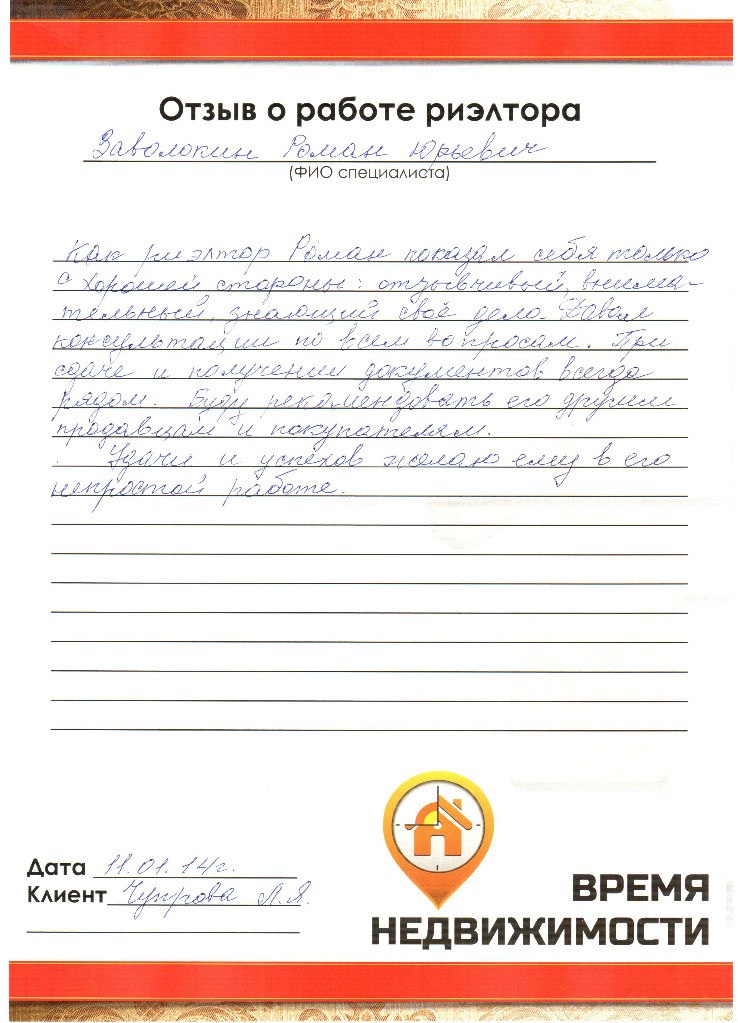 Отзыв о работе риэлтора
Заволокин Роман Юрьевич
(ФИО специалиста)
Как риэлтор Роман показал себя только
с хорошей стороны: отзывчивый, внима-
тельный, знающий своё дело. Давал
консультации по всем вопросам. При
сдаче и получении документов всегда
рядом. Буду рекомендовать его другим
продавцам и покупателям.
Удачи и успехов желаю ему в его
непростой работе.
Дата 11.01.14г.
Клиент Чупрова Л.Я.
ВРЕМЯ
НЕДВИЖИМОСТИ